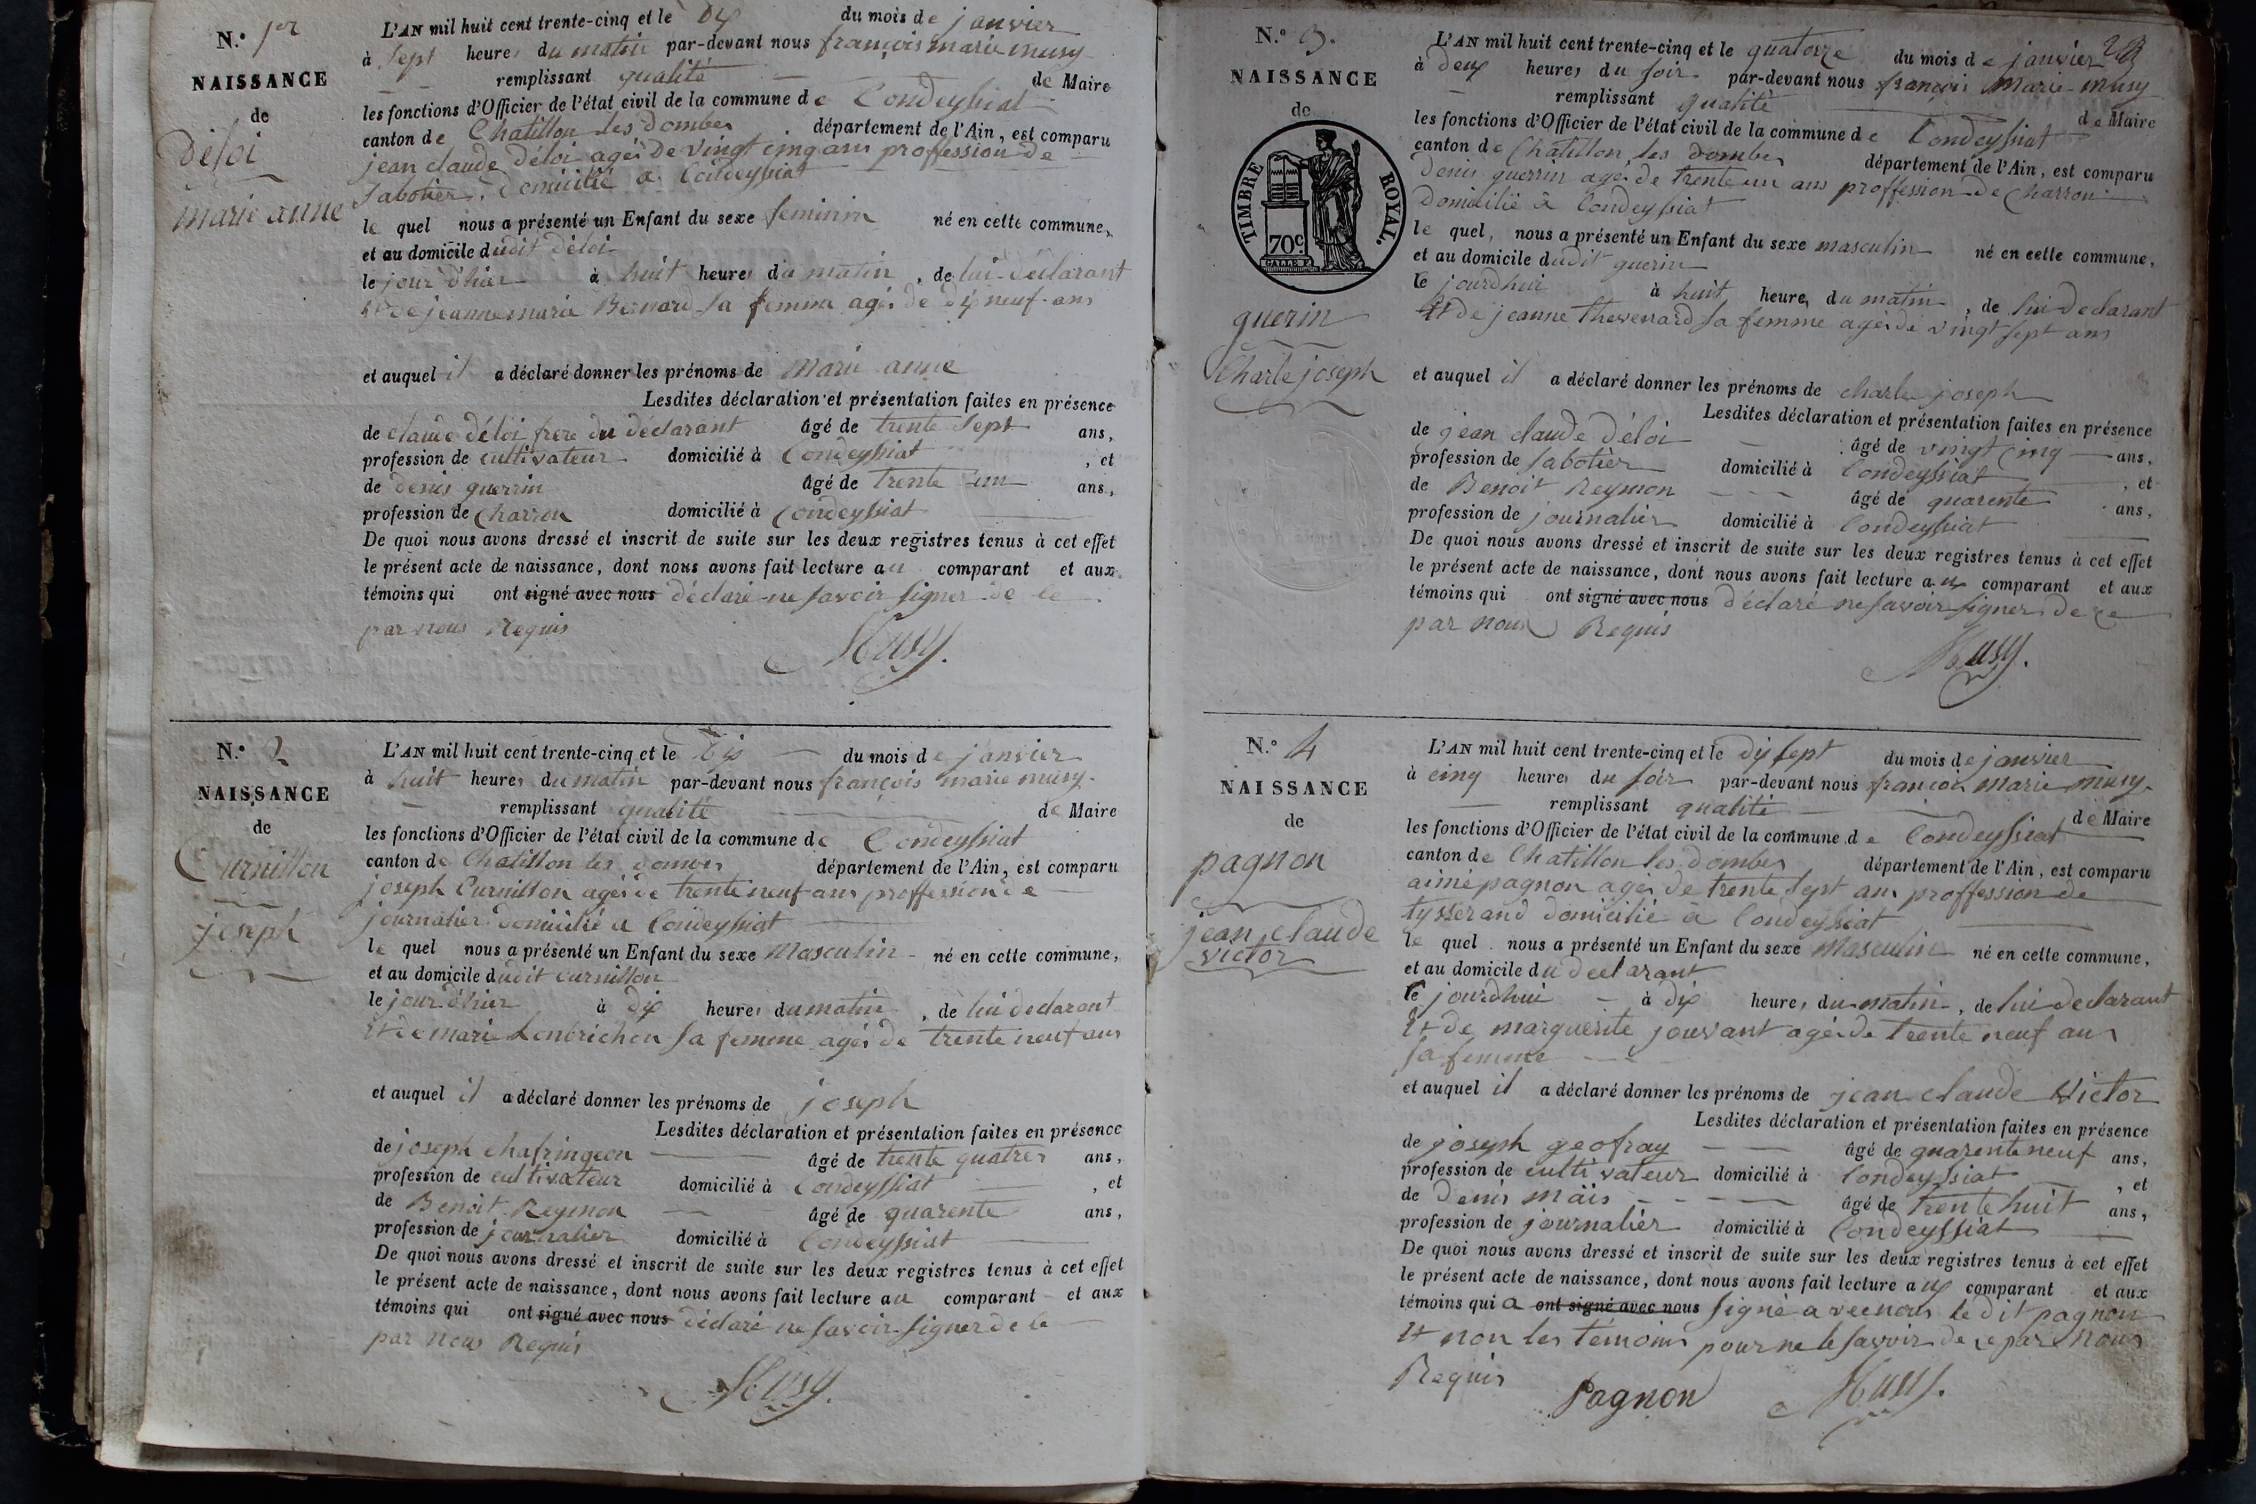 N.º 1er
NAISSANCE
de
Déloi
marie anne
L'AN mil huit cent trente-cinq et le dix du mois de janvier
à sept heures du matin par-devant nous françois marie musy
remplissant qualité de Maire
les fonctions d'Officier de l'état civil de la commune de Condeyssiat
canton de Chatillon les dombes département de l'Ain, est comparu
jean claude Déloi agés de vingt cinq ans proffession de
Sabotier, domicilié a Condeyssiat
le quel nous a présenté un Enfant du sexe feminin né en cette commune,
et au domicile dudit déloi
le jour d'hier à huit heures du matin, de lui déclarant
Et de jeanne marie Bernard sa femme agés de dix neuf ans
et auquel il a déclaré donner les prénoms de Marie anne
Lesdites déclaration et présentation faites en présence
de claude déloi frere du declarant âgé de trente Sept ans,
profession de cultivateur domicilié à Condeyssiat, et
de denis guerrin âgé de trente un ans,
profession de Charron domicilié à Condeyssiat
De quoi nous avons dressé et inscrit de suite sur les deux registres tenus à cet effet
le présent acte de naissance, dont nous avons fait lecture au comparant et aux
témoins qui ont signé avec nous déclaré ne savoir signer de ce
par nous Requis
Musy.
N.º 2
NAISSANCE
de
Curnillon
joseph
L'AN mil huit cent trente-cinq et le dix du mois de janvier
à huit heures du matin par-devant nous françois marie musy
remplissant qualité de Maire
les fonctions d'Officier de l'état civil de la commune de Condeyssiat
canton de Chatillon les dombes département de l'Ain, est comparu
joseph Curnillon agés de trente neuf ans proffession de
journalier domicilié a Condeyssiat
le quel nous a présenté un Enfant du sexe Masculin né en cette commune,
et au domicile dudit curnillon
le jour d'hier à dix heures du matin, de lui declarant
Et de marie sa femme agés de trente neuf ans
et auquel il a déclaré donner les prénoms de joseph
Lesdites déclaration et présentation faites en présence
de joseph chafringeon âgé de trente quatres ans,
profession de cultivateur domicilié à Condeyssiat, et
de Benoit Reymon âgé de quarente ans,
profession de journalier domicilié à Condeyssiat
De quoi nous avons dressé et inscrit de suite sur les deux registres tenus à cet effet
le présent acte de naissance, dont nous avons fait lecture au comparant et aux
témoins qui ont signé avec nous déclaré ne savoir signer de ce
par nous Requis
Musy.
N.º 3.
NAISSANCE
de
TIMBRE ROYAL.
70c
guerin
Charle joseph
L'AN mil huit cent trente-cinq et le quatorze du mois de janvier
à deux heures du soir par-devant nous françois Marie musy
remplissant qualité de Maire
les fonctions d'Officier de l'état civil de la commune de Condeyssiat
canton de Chatillon les dombes département de l'Ain, est comparu
Denis guerrin agés de trente un ans proffession de Charron
domicilié à Condeyssiat
le quel, nous a présenté un Enfant du sexe masculin né en cette commune,
et au domicile dudit guerin
le jourdhui à huit heures du matin, de lui declarant
Et de jeanne thevenard sa femme agés de vingt sept ans
et auquel il a déclaré donner les prénoms de charle joseph
Lesdites déclaration et présentation faites en présence
de jean claude déloi âgé de vingt cinq ans,
profession de Sabotier domicilié à Condeyssiat, et
de Benoit Reymon âgé de quarente ans,
profession de journalier domicilié à Condeyssiat
De quoi nous avons dressé et inscrit de suite sur les deux registres tenus à cet effet
le présent acte de naissance, dont nous avons fait lecture aux comparant et aux
témoins qui ont signé avec nous déclaré ne savoir signer de ce
par nous Requis
Musy.
N.º 4
NAISSANCE
de
pagnon
jean claude
victor
L'AN mil huit cent trente-cinq et le dix sept du mois de janvier
à cinq heures du soir par-devant nous françois Marie musy.
remplissant qualité de Maire
les fonctions d'Officier de l'état civil de la commune de Condeyssiat
canton de Chatillon les dombes département de l'Ain, est comparu
aimé pagnon agés de trente Sept ans proffession de
tysserand domicilié à Condeyssiat
le quel nous a présenté un Enfant du sexe Masculin né en cette commune,
et au domicile du declarant
le jourdhui à dix heures du matin, de lui declarant
Et de marguerite jouvant agés de trente neuf ans
sa femme
et auquel il a déclaré donner les prénoms de jean claude Victor
Lesdites déclaration et présentation faites en présence
de joseph geofray âgé de quarente neuf ans,
profession de cultivateur domicilié à Condeyssiat, et
de Denis mais âgé de trente huit ans,
profession de journalier domicilié à Condeyssiat
De quoi nous avons dressé et inscrit de suite sur les deux registres tenus à cet effet
le présent acte de naissance, dont nous avons fait lecture aux comparant et aux
témoins qui a ont signé avec nous signé avec nous le dit pagnon
Et non les témoins pour ne le savoir de ce par Nous
Requis
Pagnon Musy.